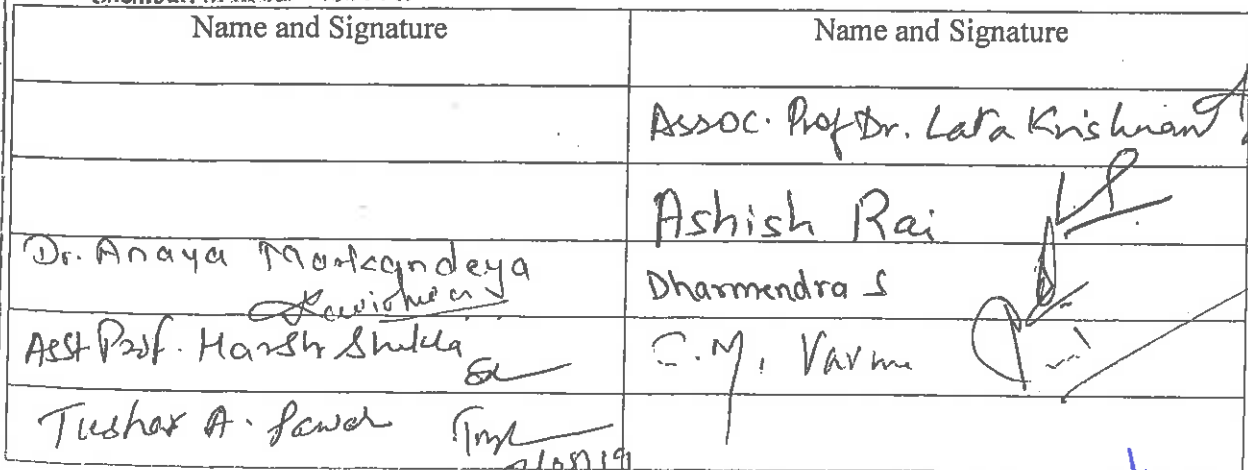 Name and Signature
Name and Signature
Assoc. Prof Dr. Lata Krishnan
Ashish Rai
Dr. Anaya Markandeya
Dharmendra S
Asst Prof. Harsh Shukla
C.M. Varma
Tushar A.